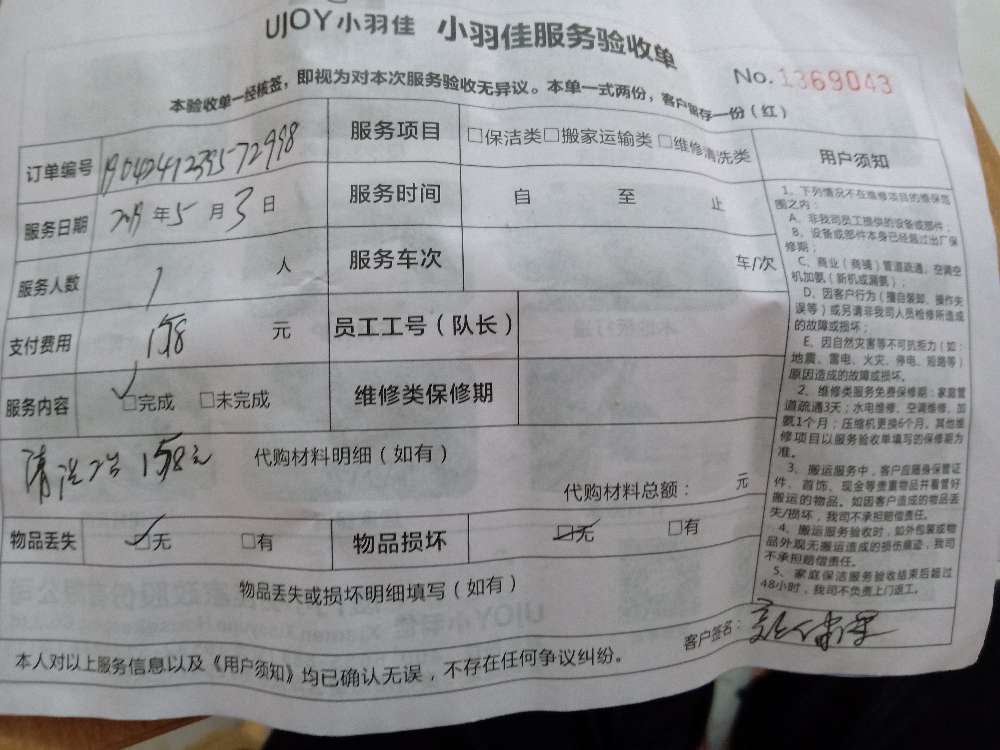 UJOY小羽佳 小羽佳服务验收单
No.1369043
本验收单一经核签，即视为对本次服务验收无异议。本单一式两份，客户留存一份（红）
订单编号 服务项目 □保洁类□搬家运输类 □维修清洗类
服务日期 2019年5月3日 服务时间 自 至 止
服务人数 1 人 服务车次 车/次
支付费用 158 元 员工工号（队长）
服务内容 ✓□完成 □未完成 维修类保修期
清洗2台 158元 代购材料明细（如有）
代购材料总额： 元
物品丢失 ☑无 □有 物品损坏 ☑无 □有
物品丢失或损坏明细填写（如有）
客户签名：
本人对以上服务信息以及《用户须知》均已确认无误，不存在任何争议纠纷。
用户须知
1、下列情况不在维修项目的维保范
围之内：
A、非我司员工提供的设备或部件；
B、设备或部件本身已经超过出厂保
修期；
C、商业（商铺）管道疏通、空调空
机加氨（新机或漏氨）；
D、因客户行为（擅自装卸、操作失
误等）或另请非我司人员检修所造成
的故障或损坏；
E、因自然灾害等不可抗拒力（如：
地震、雷电、火灾、停电、短路等）
原因造成的故障或损坏。
2、维修类服务免费保修期：家庭管
道疏通3天；水电维修、空调维修、加
氨1个月；压缩机更换6个月，其他维
修项目以服务验收单填写的保修期为
准。
3、搬运服务中，客户应随身保管证
件、首饰、现金等贵重物品并看管好
搬运的物品。如因客户造成的物品丢
失/损坏，我司不承担赔偿责任。
4、搬运服务验收时，如外包装或物
品外观无搬运造成的损伤痕迹，我司
不承担赔偿责任。
5、家庭保洁服务验收结束后超过
48小时，我司不负责上门返工。